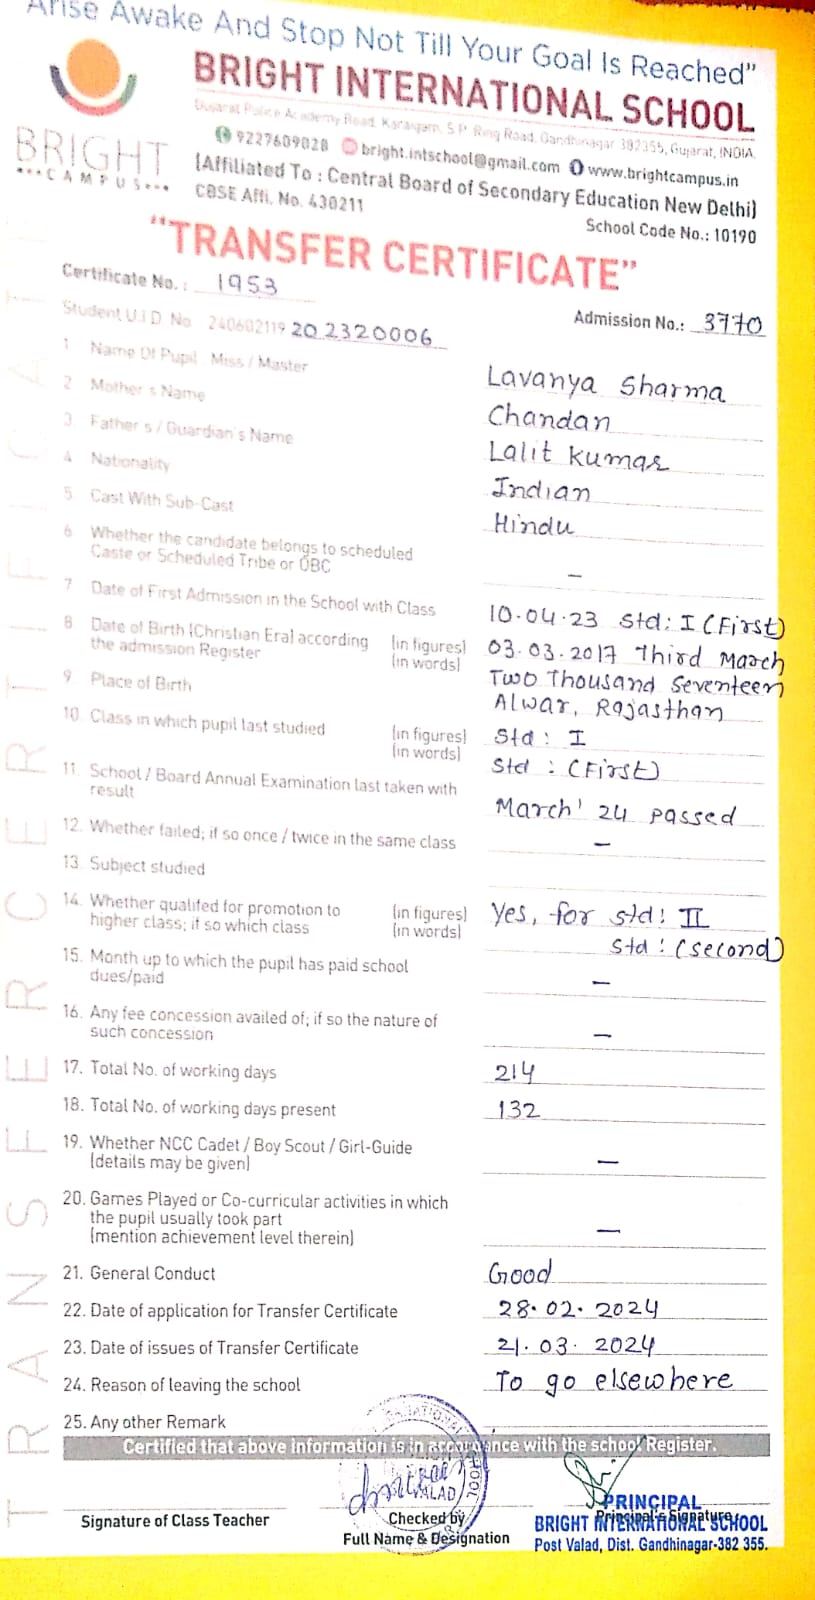 Arise Awake And Stop Not Till Your Goal Is Reached"
BRIGHT INTERNATIONAL SCHOOL
Gujarat Police Academy Road, Karaigam, S.P. Ring Road, Gandhinagar 382355, Gujarat, INDIA.
9227609028 bright.intschool@gmail.com www.brightcampus.in
BRIGHT
CAMPUS
(Affiliated To : Central Board of Secondary Education New Delhi)
CBSE Affi. No. 430211
School Code No.: 10190
"TRANSFER CERTIFICATE"
Certificate No. : 1953
Admission No.: 3770
Student U.I.D. No. 240602119 202320006
1 Name Of Pupil Miss / Master Lavanya Sharma
2 Mother s Name Chandan
3 Father s / Guardian s Name Lalit Kumar
4 Nationality Indian
5 Cast With Sub-Cast Hindu
6 Whether the candidate belongs to scheduled
Caste or Scheduled Tribe or OBC —
7 Date of First Admission in the School with Class 10.04.23 Std: I (First)
8 Date of Birth (Christian Era) according (in figures) 03.03.2017 Third March
the admission Register (in words) Two Thousand Seventeen
9 Place of Birth Alwar, Rajasthan
10. Class in which pupil last studied (in figures) Std : I
(in words) Std : (First)
11. School / Board Annual Examination last taken with
result March' 24 passed
12. Whether failed; if so once / twice in the same class —
13. Subject studied
14. Whether qualifed for promotion to (in figures) Yes, for std: II
higher class; if so which class (in words) Std : (second)
15. Month up to which the pupil has paid school
dues/paid —
16. Any fee concession availed of; if so the nature of
such concession —
17. Total No. of working days 214
18. Total No. of working days present 132
19. Whether NCC Cadet / Boy Scout / Girl-Guide
(details may be given) —
20. Games Played or Co-curricular activities in which
the pupil usually took part
(mention achievement level therein) —
21. General Conduct Good
22. Date of application for Transfer Certificate 28.02.2024
23. Date of issues of Transfer Certificate 21.03.2024
24. Reason of leaving the school To go elsewhere
25. Any other Remark
Certified that above information is in accordance with the school Register.
VALAD
SCHOOL
Signature of Class Teacher
Checked by
Full Name & Designation
PRINCIPAL
Principal's Signature
BRIGHT INTERNATIONAL SCHOOL
Post Valad, Dist. Gandhinagar-382 355.
TRANSFER CERTIFICATE